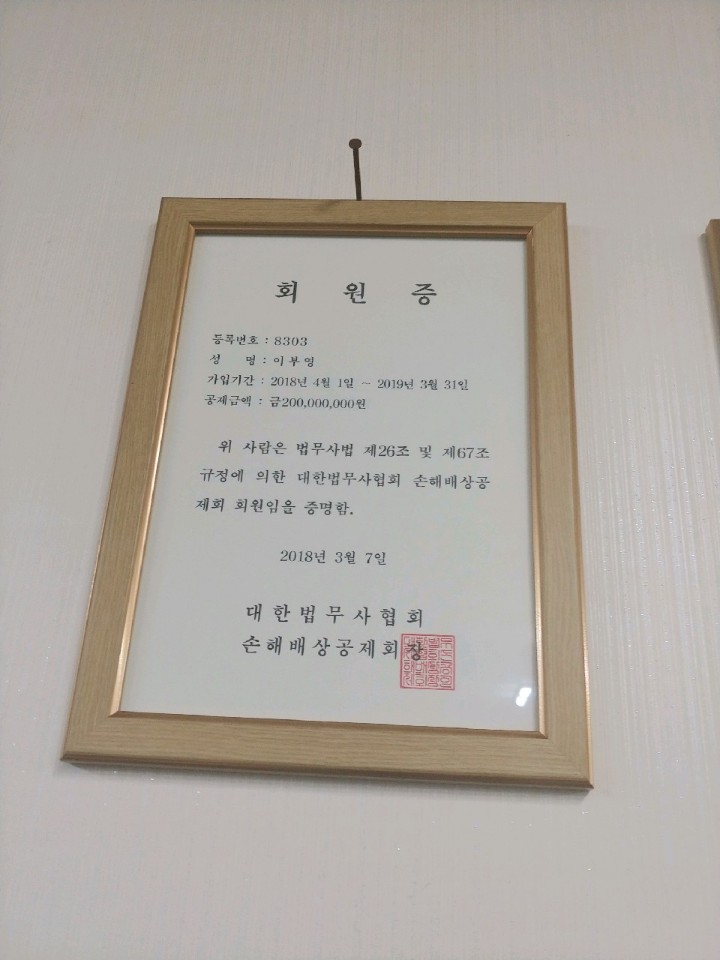 회 원 증
등록번호 : 8303
성 명 : 이부영
가입기간 : 2018년 4월 1일 ~ 2019년 3월 31일
공제금액 : 금200,000,000원
위 사람은 법무사법 제26조 및 제67조
규정에 의한 대한법무사협회 손해배상공
제회 회원임을 증명함.
2018년 3월 7일
대한법무사협회
손해배상공제회장